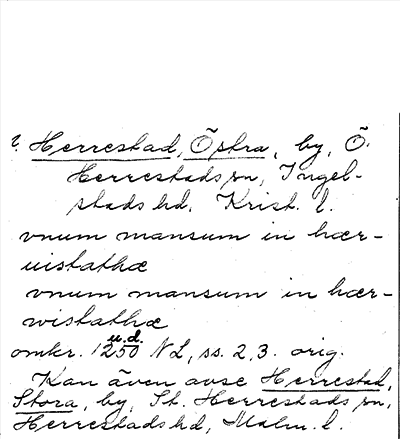 2. Herrestad, Östra, by, Ö.
Herrestads sn, Ingel-
stads hd, Krist. l.
vnum mansum in hær-
uistathæ
vnum mansum in hær-
wistathæ
u.d.
omkr. 1250 NL, ss. 2, 3. orig.
Kan även avse Herrestad,
Stora, by, St. Herrestads sn,
Herrestads hd, Malm. l.